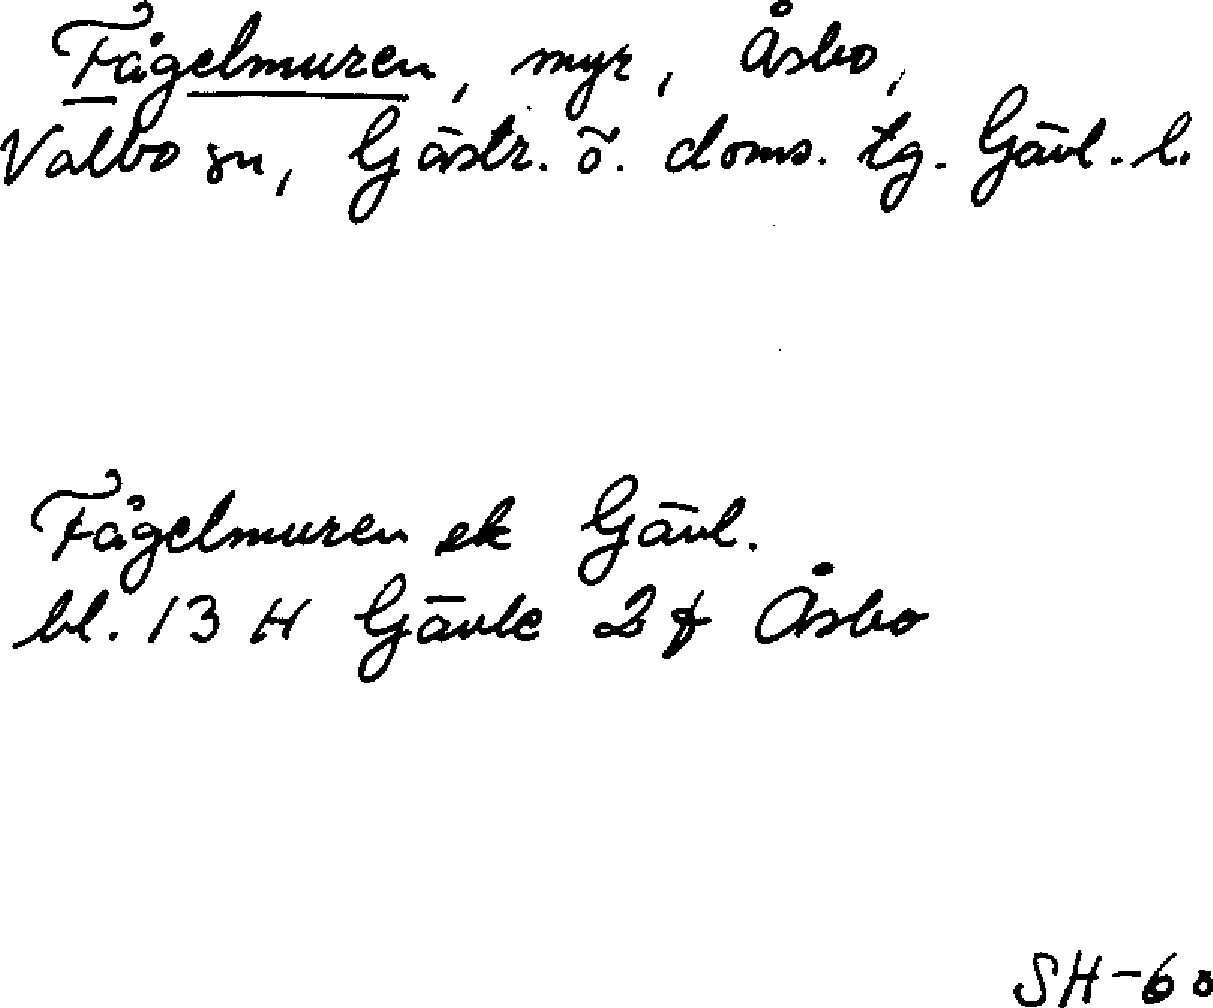 Fågelmuren, myr, Åsbo,
Valbo sn, Gästr. ö. doms. tg. Gävl. l.
Fågelmuren ek Gävl.
bl. 13 H Gävle 2 f Åsbo
SH-68